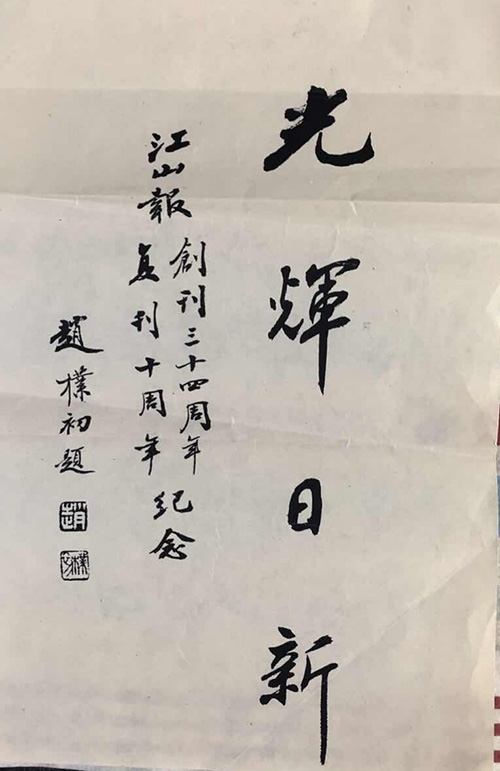 光輝日新
江山報創刊三十四周年
复刊十周年紀念
趙樸初題
趙
樸初